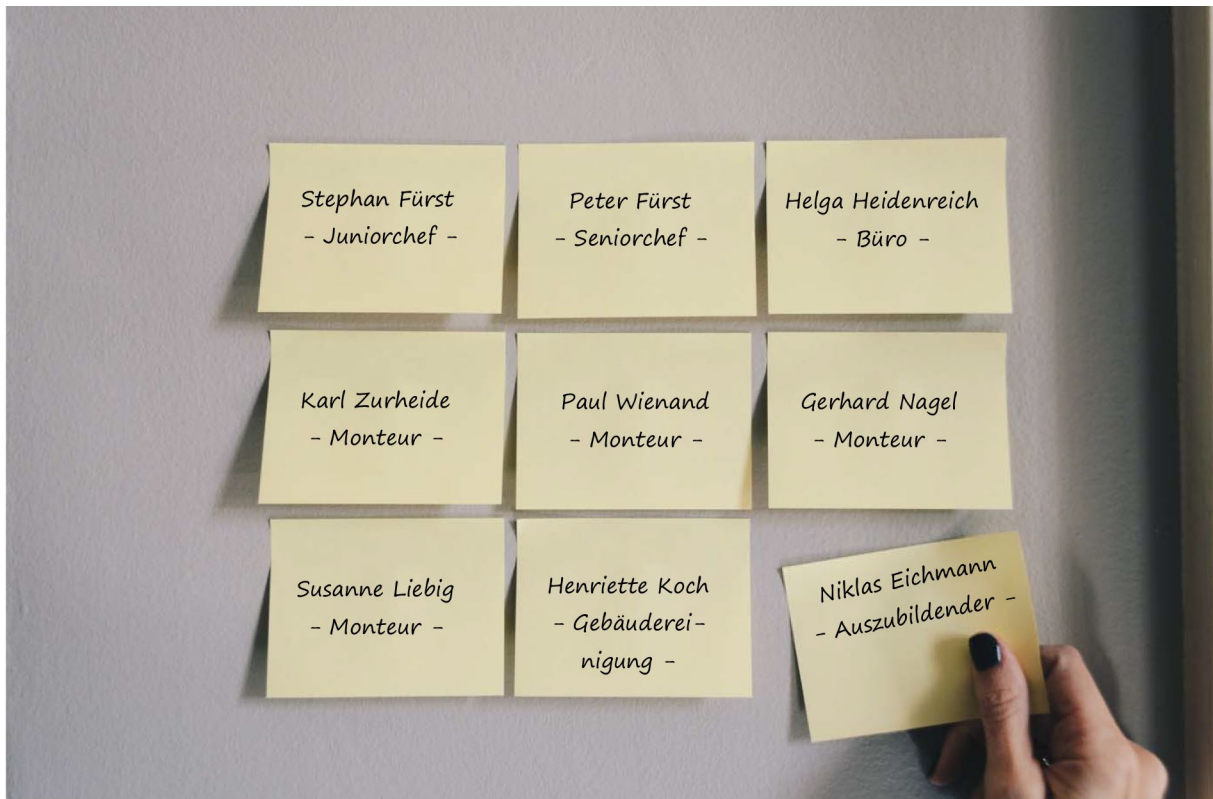 Stephan Fürst
- Juniorchef -
Peter Fürst
- Seniorchef -
Helga Heidenreich
- Büro -
Karl Zurheide
- Monteur -
Paul Wienand
- Monteur -
Gerhard Nagel
- Monteur -
Susanne Liebig
- Monteur -
Henriette Koch
- Gebäuderei-
nigung -
Niklas Eichmann
- Auszubildender -